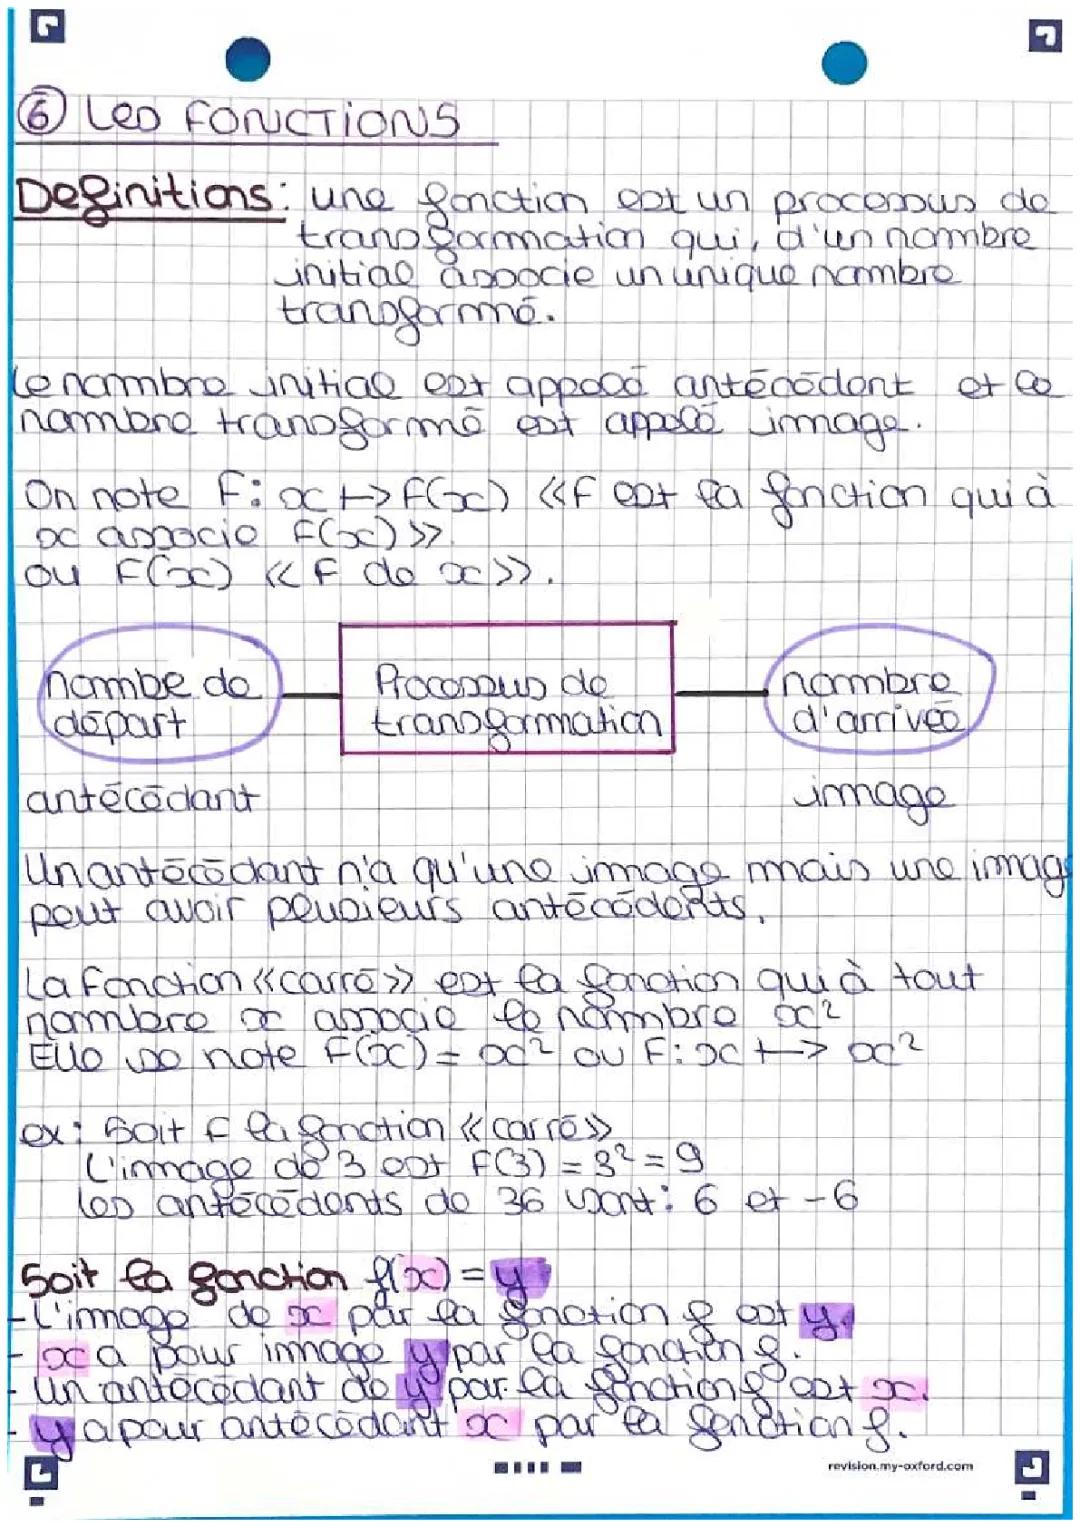 ⑥ Les FONCTIONS
Definitions: une fonction est un processus de
transformation qui, d'un nombre
initial associe un unique nombre
transformé.
Le nombre initial est appelé antécédent et le
nombre transformé est appelé image.
On note F: x ↦ F(x) «F est la fonction qui à
x associe F(x)»
ou F(x) «F de x».
nombe de
départ
Processus de
transformation
nombre
d'arrivée
antécédant
image
Un antécédant n'a qu'une image mais une imag
peut avoir peusieurs antécédents.
La fonction «carré» est la fonction qui à tout
nombre x associe le nombre x²
Elle se note F(x) = x² ou F: x ↦ x²
ex: Soit F la fonction «carré»
L'image de 3 est F(3) = 3² = 9
les antécédents de 36 sont: 6 et -6
Soit la fonction f(x) = y
- L'image de x par la fonction f est y.
- x a pour image y par la fonction f.
- Un antécédant de y par la fonction f est x.
- y a pour antécédant x par la fonction f.
revision.my-oxford.com